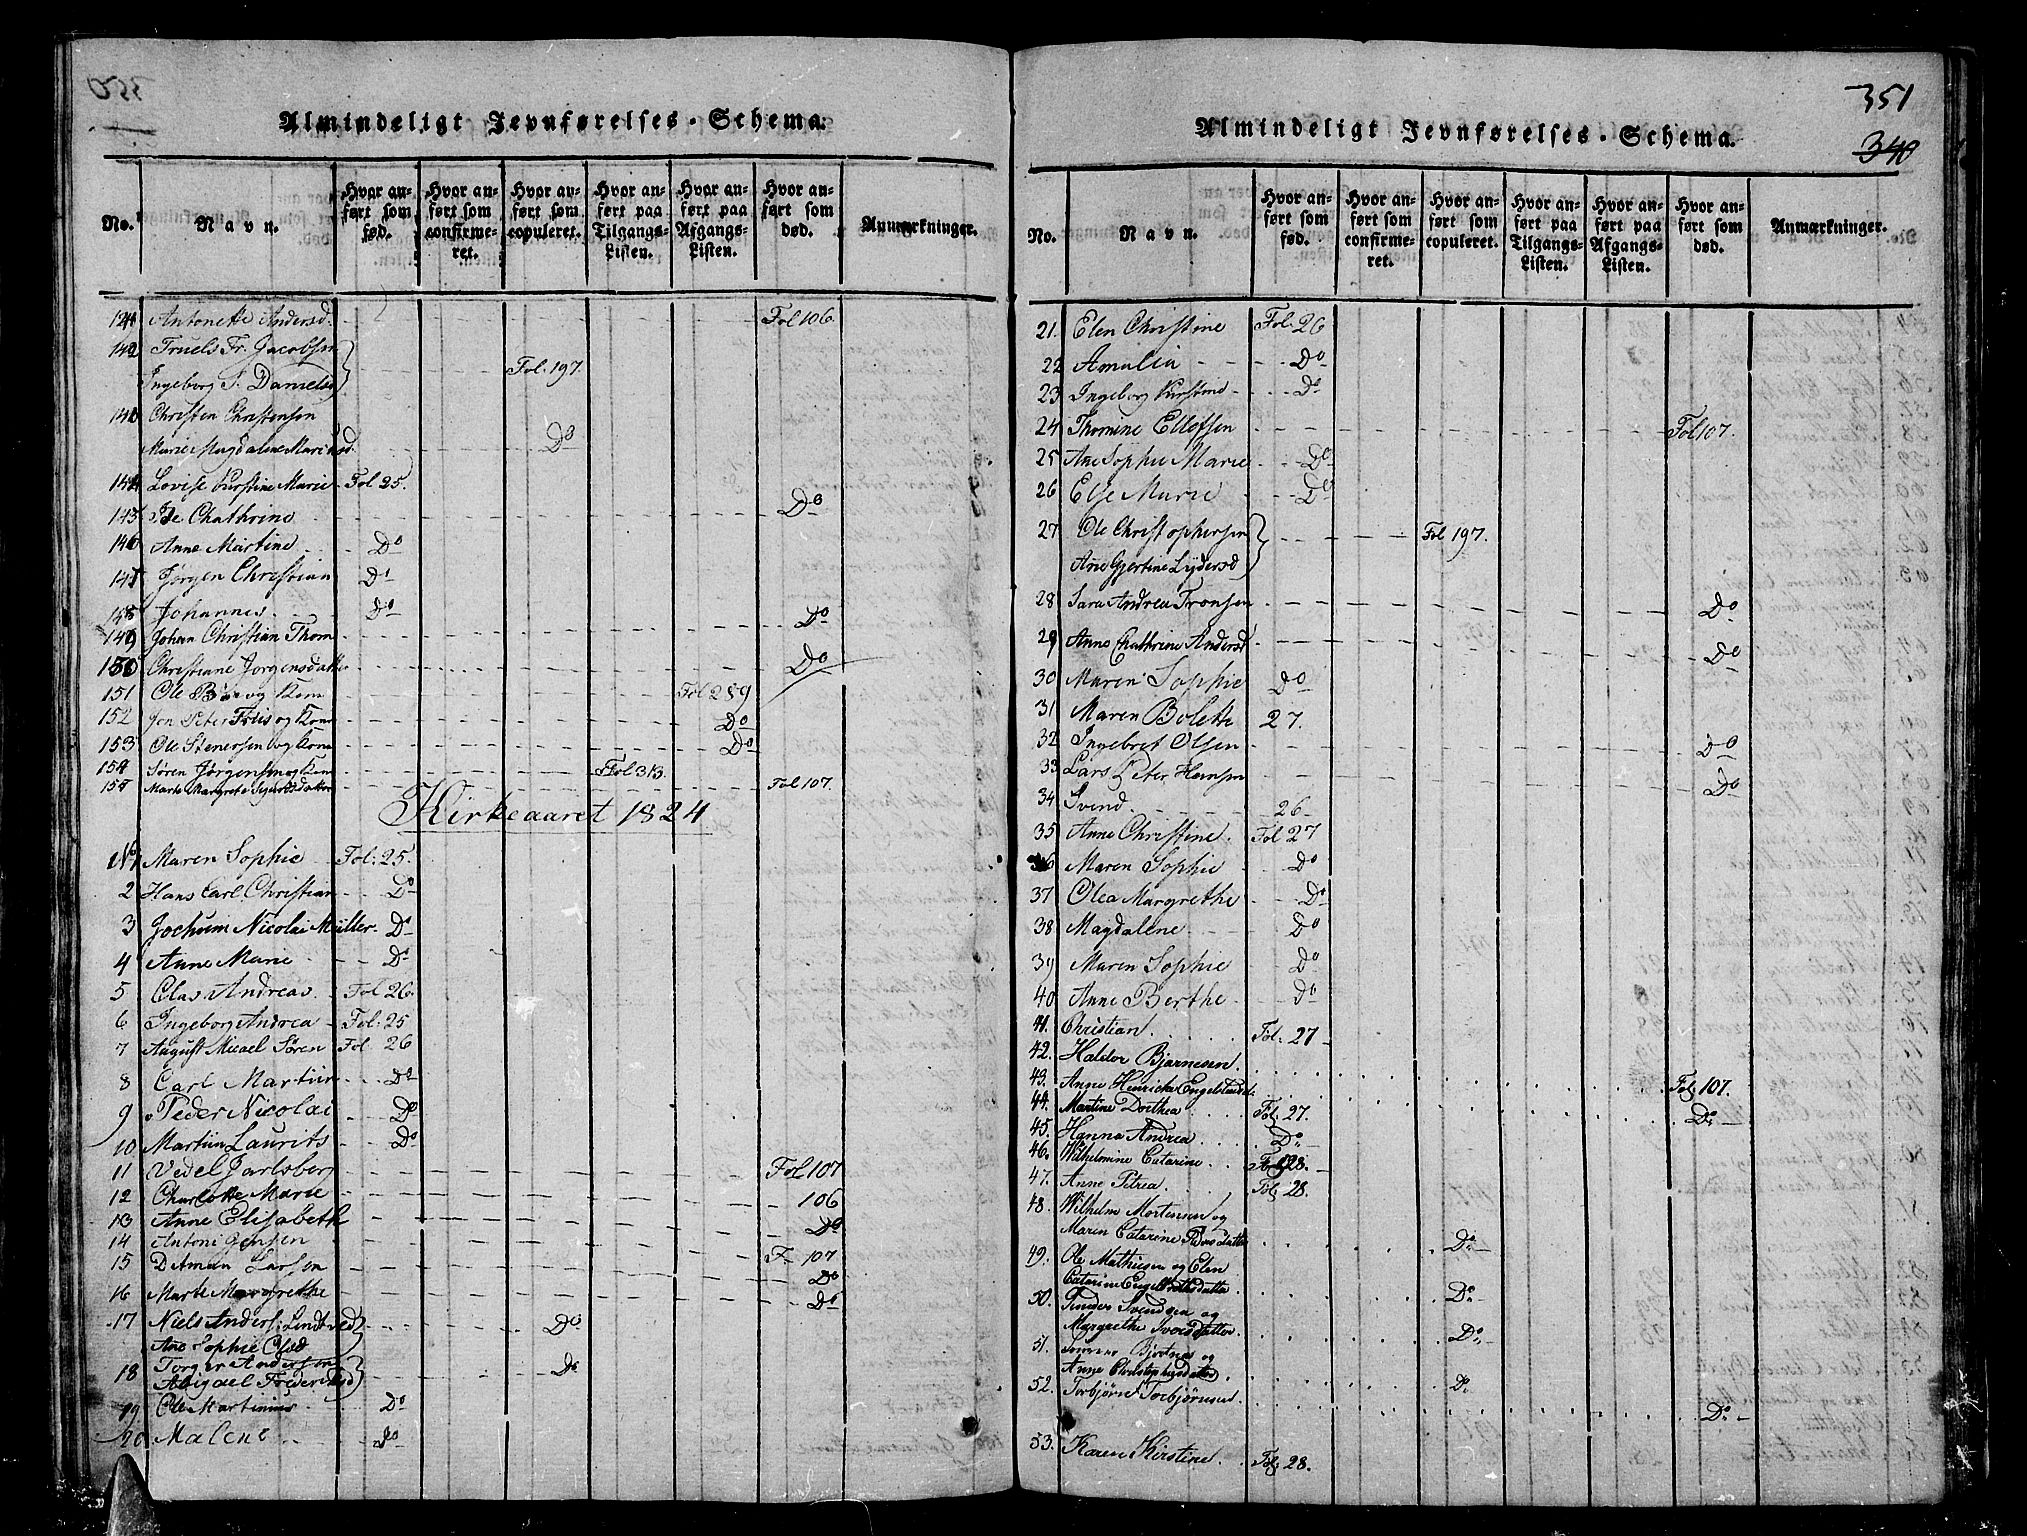 Almindeligt Jevnførelses-Schema.
No. Navn. Hvor anført som fød. Hvor anført som confirmeret. Hvor anført som copuleret. Hvor anført paa Tilgangs-Listen. Hvor anført paa Afgangs-Listen. Hvor anført som død. Anmærkninger.
Antonette Andersd. Fol 106
142 Truels Fr. Jacobsen
Ingeborg S. Danielsd Fol. 197
Christen Christensen
Marie Magdalene D°
144 Lovise Kirstine Marie Fol 25.
143 Ide Chathrine D°
146 Anne Martine D°
147 Jørgen Christian D°
148 Johannes D°
149 Johan Christian Thom D°
150 Christiane Jorgensdatter D°
151 Ole og Kone Fol 289
152 Jon Peter Friis og Kone D°
153 Ole Stenersen og Kone D°
154 Søren Jørgensen og Kone Fol 313
155 Marte Margrete Sigurdsdatter Fol 107.
Kirkeaaret 1824
No 1 Maren Sophie Fol: 25.
2 Hans Carl Christian D°
3 Jochum Nicolai Müller D°
4 Anne Marie D°
5 Clas Andreas Fol 26.
6 Ingeborg Andrea Fol: 25
7 August Micael Søren Fol 26
8 Carl Martin D°
9 Peder Nicolai D°
10 Martin Laurits D°
11 Vedel Jarlsberg Fol 107
12 Charlotte Marie 106
13 Anne Elisabeth D°
14 Antoni Jensen F 107
15 Ditman Larsen D°
16 Marte Margrethe D°
17 Niels Anders: Lindtved D°
Ane Sophie Olsd
18 Torger Andersen D°
Abigael Fredriksd
19 Ole Martinius D°
20 Malene D°
351
340
Almindeligt Jevnførelses-Schema.
No. Navn. Hvor anført som fød. Hvor anført som confirmeret. Hvor anført som copuleret. Hvor anført paa Tilgangs-Listen. Hvor anført paa Afgangs-Listen. Hvor anført som død. Anmærkninger.
21. Elen Christine Fol. 26
22 Amalia D°
23 Ingeborg Kirstine D°
24 Thomine Ellefsen Fol 107.
25 Ane Sophie Marie D°
26 Else Marie D°
27 Ole Christophersen Fol 197.
Ane Gjertine Lydersd
28 Sara Andrea Tronsen D°
29 Anne Chathrine Andersd D°
30 Maren Sophie D°
31 Maren Bolette 27.
32 Ingebret Olsen D°
33 Lars Peter Hansen D°
34 Svend 26
35 Anne Christine. Fol 27
36 Maren Sophie D°
37 Olea Margrethe D°
38 Magdalene D°
39 Maren Sophie D°
40 Anne Berthe D°
41. Christian. Fol. 27
42. Haldor Bjarnesen.
43. Anne Henricke Fol 107.
44. Martine Dorthea Fol. 27. D°
45. Hanna Andrea D°
46. Wilhelmine Catarine Fol 28.
47. Anne Petrea Fol. 28.
48. Wilhelm Mortensen og
Maren Catarine Pedersdatter D°
49. Ole Mathiesen og Elen
Catarine Engelbrethsdatter D°
50. Svendsen og
Margrethe Iversdatter. D°
51. Bjortnes og
Anne Christophersdatter D°
52. Torbjørn Torbjørnsen D°
53. Karen Kirstine. Fol. 28.